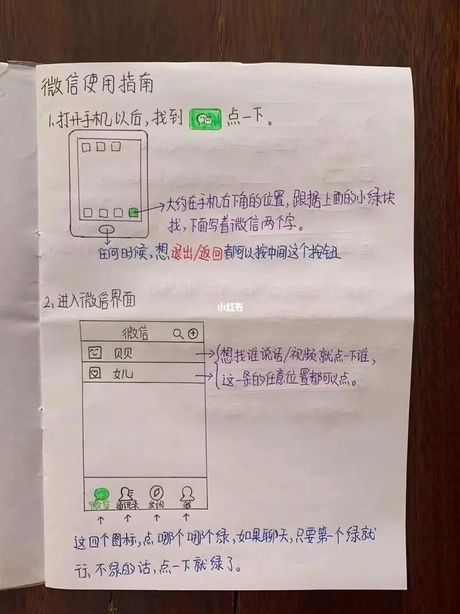 微信使用指南
1.打开手机以后,找到 点一下。
大约在手机右下角的位置,跟据上面的小绿块
找,下面写着微信两个字。
任何时候,想退出/返回都可以按中间这个按钮
2.进入微信界面
小红书
微信
贝贝
想找谁说话/视频就点一下谁,
女儿
这一条的任意位置都可以点。
微信 通讯录 发现 我
这四个图标,点哪个哪个绿,如果聊天,只要第一个绿就
行,不绿的话,点一下就绿了。